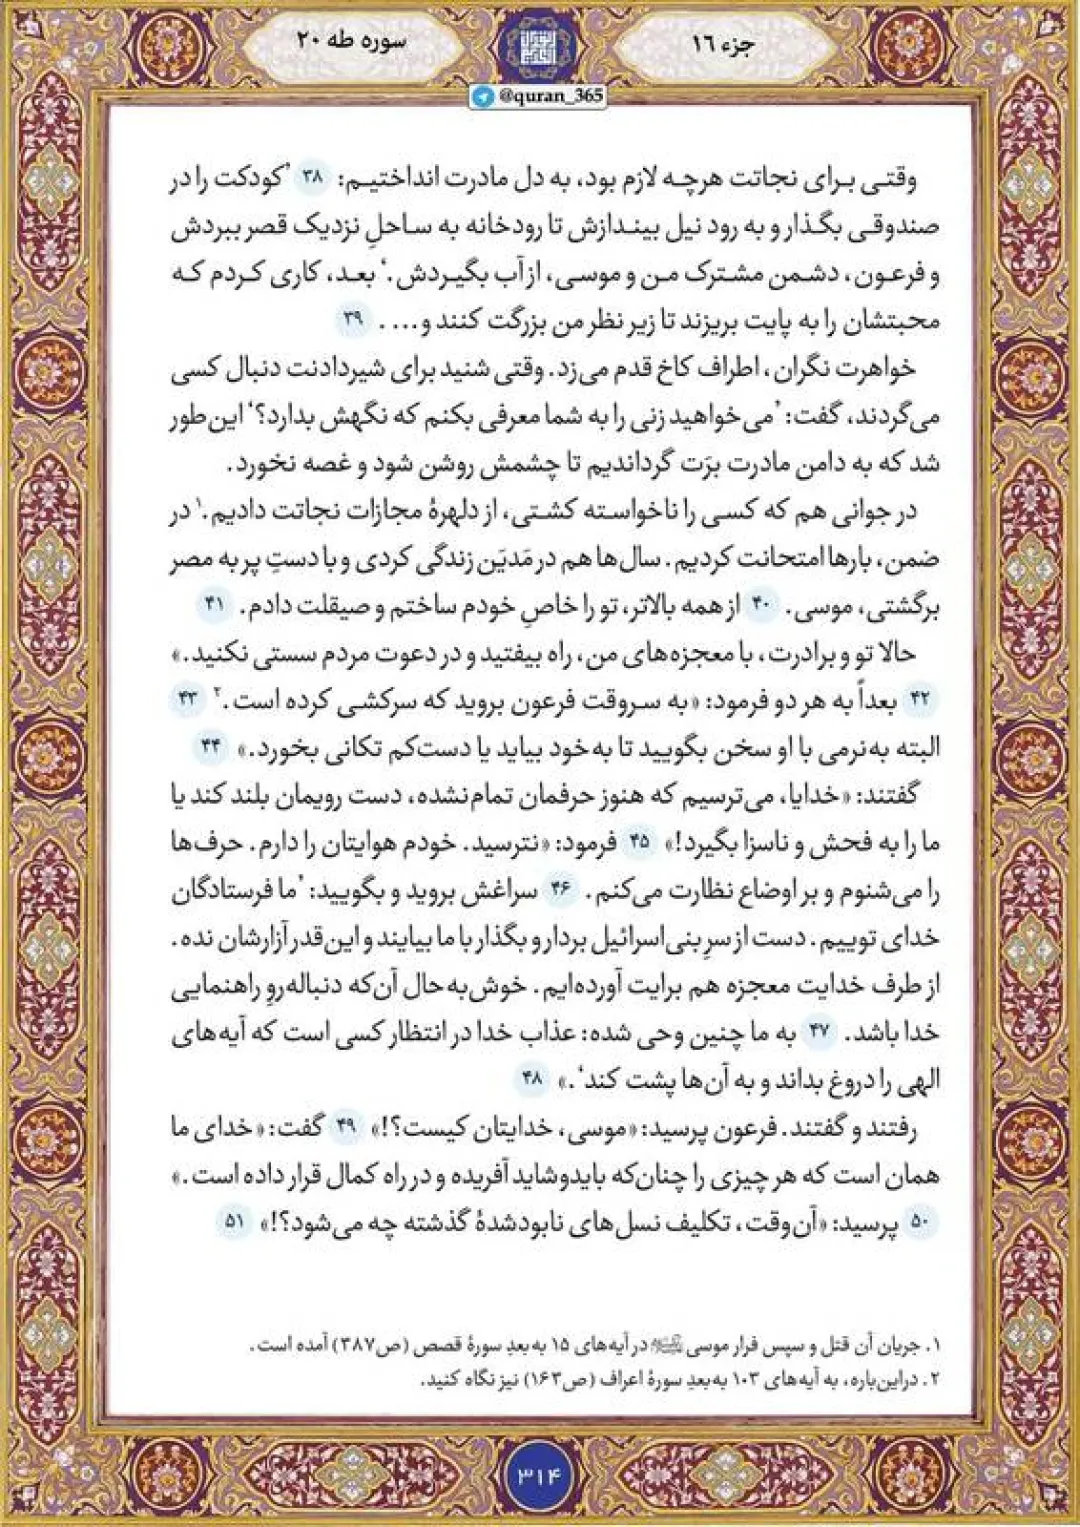 جزء ۱۶
سوره طه ۲۰
@quran_365
وقتی برای نجاتت هرچه لازم بود، به دل مادرت انداختیم: ۳۸ ’کودکت را در
صندوقی بگذار و به رود نیل بیندازش تا رودخانه به ساحلِ نزدیک قصر ببردش
و فرعون، دشمن مشترک من و موسی، از آب بگیردش.‘ بعد، کاری کردم که
محبتشان را به پایت بریزند تا زیر نظر من بزرگت کنند و.... ۳۹
خواهرت نگران، اطراف کاخ قدم می‌زد. وقتی شنید برای شیردادنت دنبال کسی
می‌گردند، گفت: ’می‌خواهید زنی را به شما معرفی بکنم که نگهش بدارد؟‘ این‌طور
شد که به دامن مادرت برَت گرداندیم تا چشمش روشن شود و غصه نخورد.
در جوانی هم که کسی را ناخواسته کشتی، از دلهرهٔ مجازات نجاتت دادیم.۱ در
ضمن، بارها امتحانت کردیم. سال‌ها هم در مَدیَن زندگی کردی و با دستِ پر به مصر
برگشتی، موسی. ۴۰ از همه بالاتر، تو را خاصِ خودم ساختم و صیقلت دادم. ۴۱
حالا تو و برادرت، با معجزه‌های من، راه بیفتید و در دعوت مردم سستی نکنید.»
۴۲ بعداً به هر دو فرمود: «به سروقت فرعون بروید که سرکشی کرده است.۲ ۴۳
البته به‌نرمی با او سخن بگویید تا به خود بیاید یا دست‌کم تکانی بخورد.» ۴۴
گفتند: «خدایا، می‌ترسیم که هنوز حرفمان تمام‌نشده، دست رویمان بلند کند یا
ما را به فحش و ناسزا بگیرد!» ۴۵ فرمود: «نترسید. خودم هوایتان را دارم. حرف‌ها
را می‌شنوم و بر اوضاع نظارت می‌کنم. ۴۶ سراغش بروید و بگویید: ’ما فرستادگان
خدای توییم. دست از سرِ بنی‌اسرائیل بردار و بگذار با ما بیایند و این‌قدر آزارشان نده.
از طرف خدایت معجزه هم برایت آورده‌ایم. خوش‌به‌حال آن‌که دنباله‌روِ راهنمایی
خدا باشد. ۴۷ به ما چنین وحی شده: عذاب خدا در انتظار کسی است که آیه‌های
الهی را دروغ بداند و به آن‌ها پشت کند‘.» ۴۸
رفتند و گفتند. فرعون پرسید: «موسی، خدایتان کیست؟!» ۴۹ گفت: «خدای ما
همان است که هر چیزی را چنان‌که بایدوشاید آفریده و در راه کمال قرار داده است.»
۵۰ پرسید: «آن‌وقت، تکلیف نسل‌های نابودشدهٔ گذشته چه می‌شود؟!» ۵۱
۱. جریان آن قتل و سپس فرار موسی در آیه‌های ۱۵ به‌بعدِ سورهٔ قصص (ص۳۸۷) آمده است.
۲. دراین‌باره، به آیه‌های ۱۰۳ به‌بعدِ سورهٔ اعراف (ص۱۶۳) نیز نگاه کنید.
۳۱۴